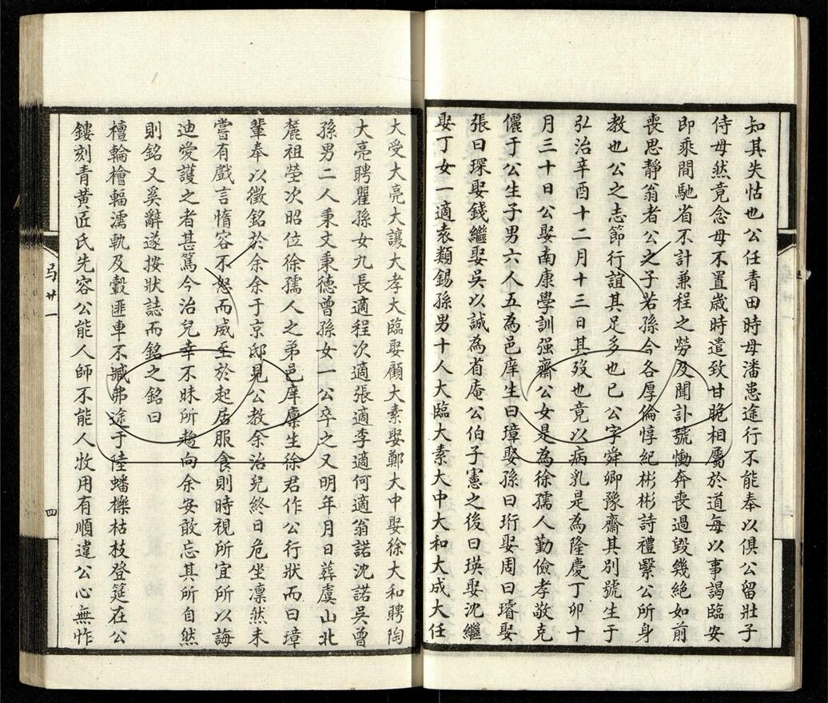 知其失怙也公任青田時母潘恚途行不能奉以俱公留壯子
侍母然竟念母不置歲時遣致甘脆相屬於道每以事謁臨安
即乘間馳省不計兼程之勞及聞訃號慟奔喪過毀幾絕如前
喪思靜翁者公之子若孫今各厚倫惇紀彬彬詩禮緊公所身
教也公之志節行誼其足多也已公字舜卿豫齋其別號生于
弘治辛酉十二月十三日其歿也竟以病乳是為隆慶丁卯十
月三十日公娶南康學訓强齋公女是為徐孺人勤儉孝敬克
儷于公生子男六人五為邑庠生曰璋娶孫曰珩娶周曰璿娶
張曰琛娶錢繼娶吳以誠為省庵公伯子憲之後曰瑛娶沈繼
娶丁女一適袁類錫孫男十人大臨大素大中大和大成大任
大受大亮大讓大孝大臨娶顧大素娶鄭大中娶徐大和聘陶
大亮聘瞿孫女九長適程次適張適李適何適翁諾沈諾吳曾
孫男二人秉文秉德曾孫女一公卒之又明年月日葬虞山北
麓祖塋次昭位徐孺人之弟邑庠廩生徐君作公行狀而曰璋
輩奉以徵銘於余余于京邸見公教余治兒終日危坐凛然未
嘗有戲言惰容不怒而威至於起居服食則時視所宜所以誨
迪愛護之者甚篤今治兒幸不昧所趨向余安敢忘其所自然
則銘又奚辭遂按狀誌而銘之銘曰
檀輪檜輻濡軌及轂匪車不臧弗途于陸蟠櫟枯枝登筵在公
鏤刻青黃匠氏先容公能人師不能人牧用有順違公心無怍
四